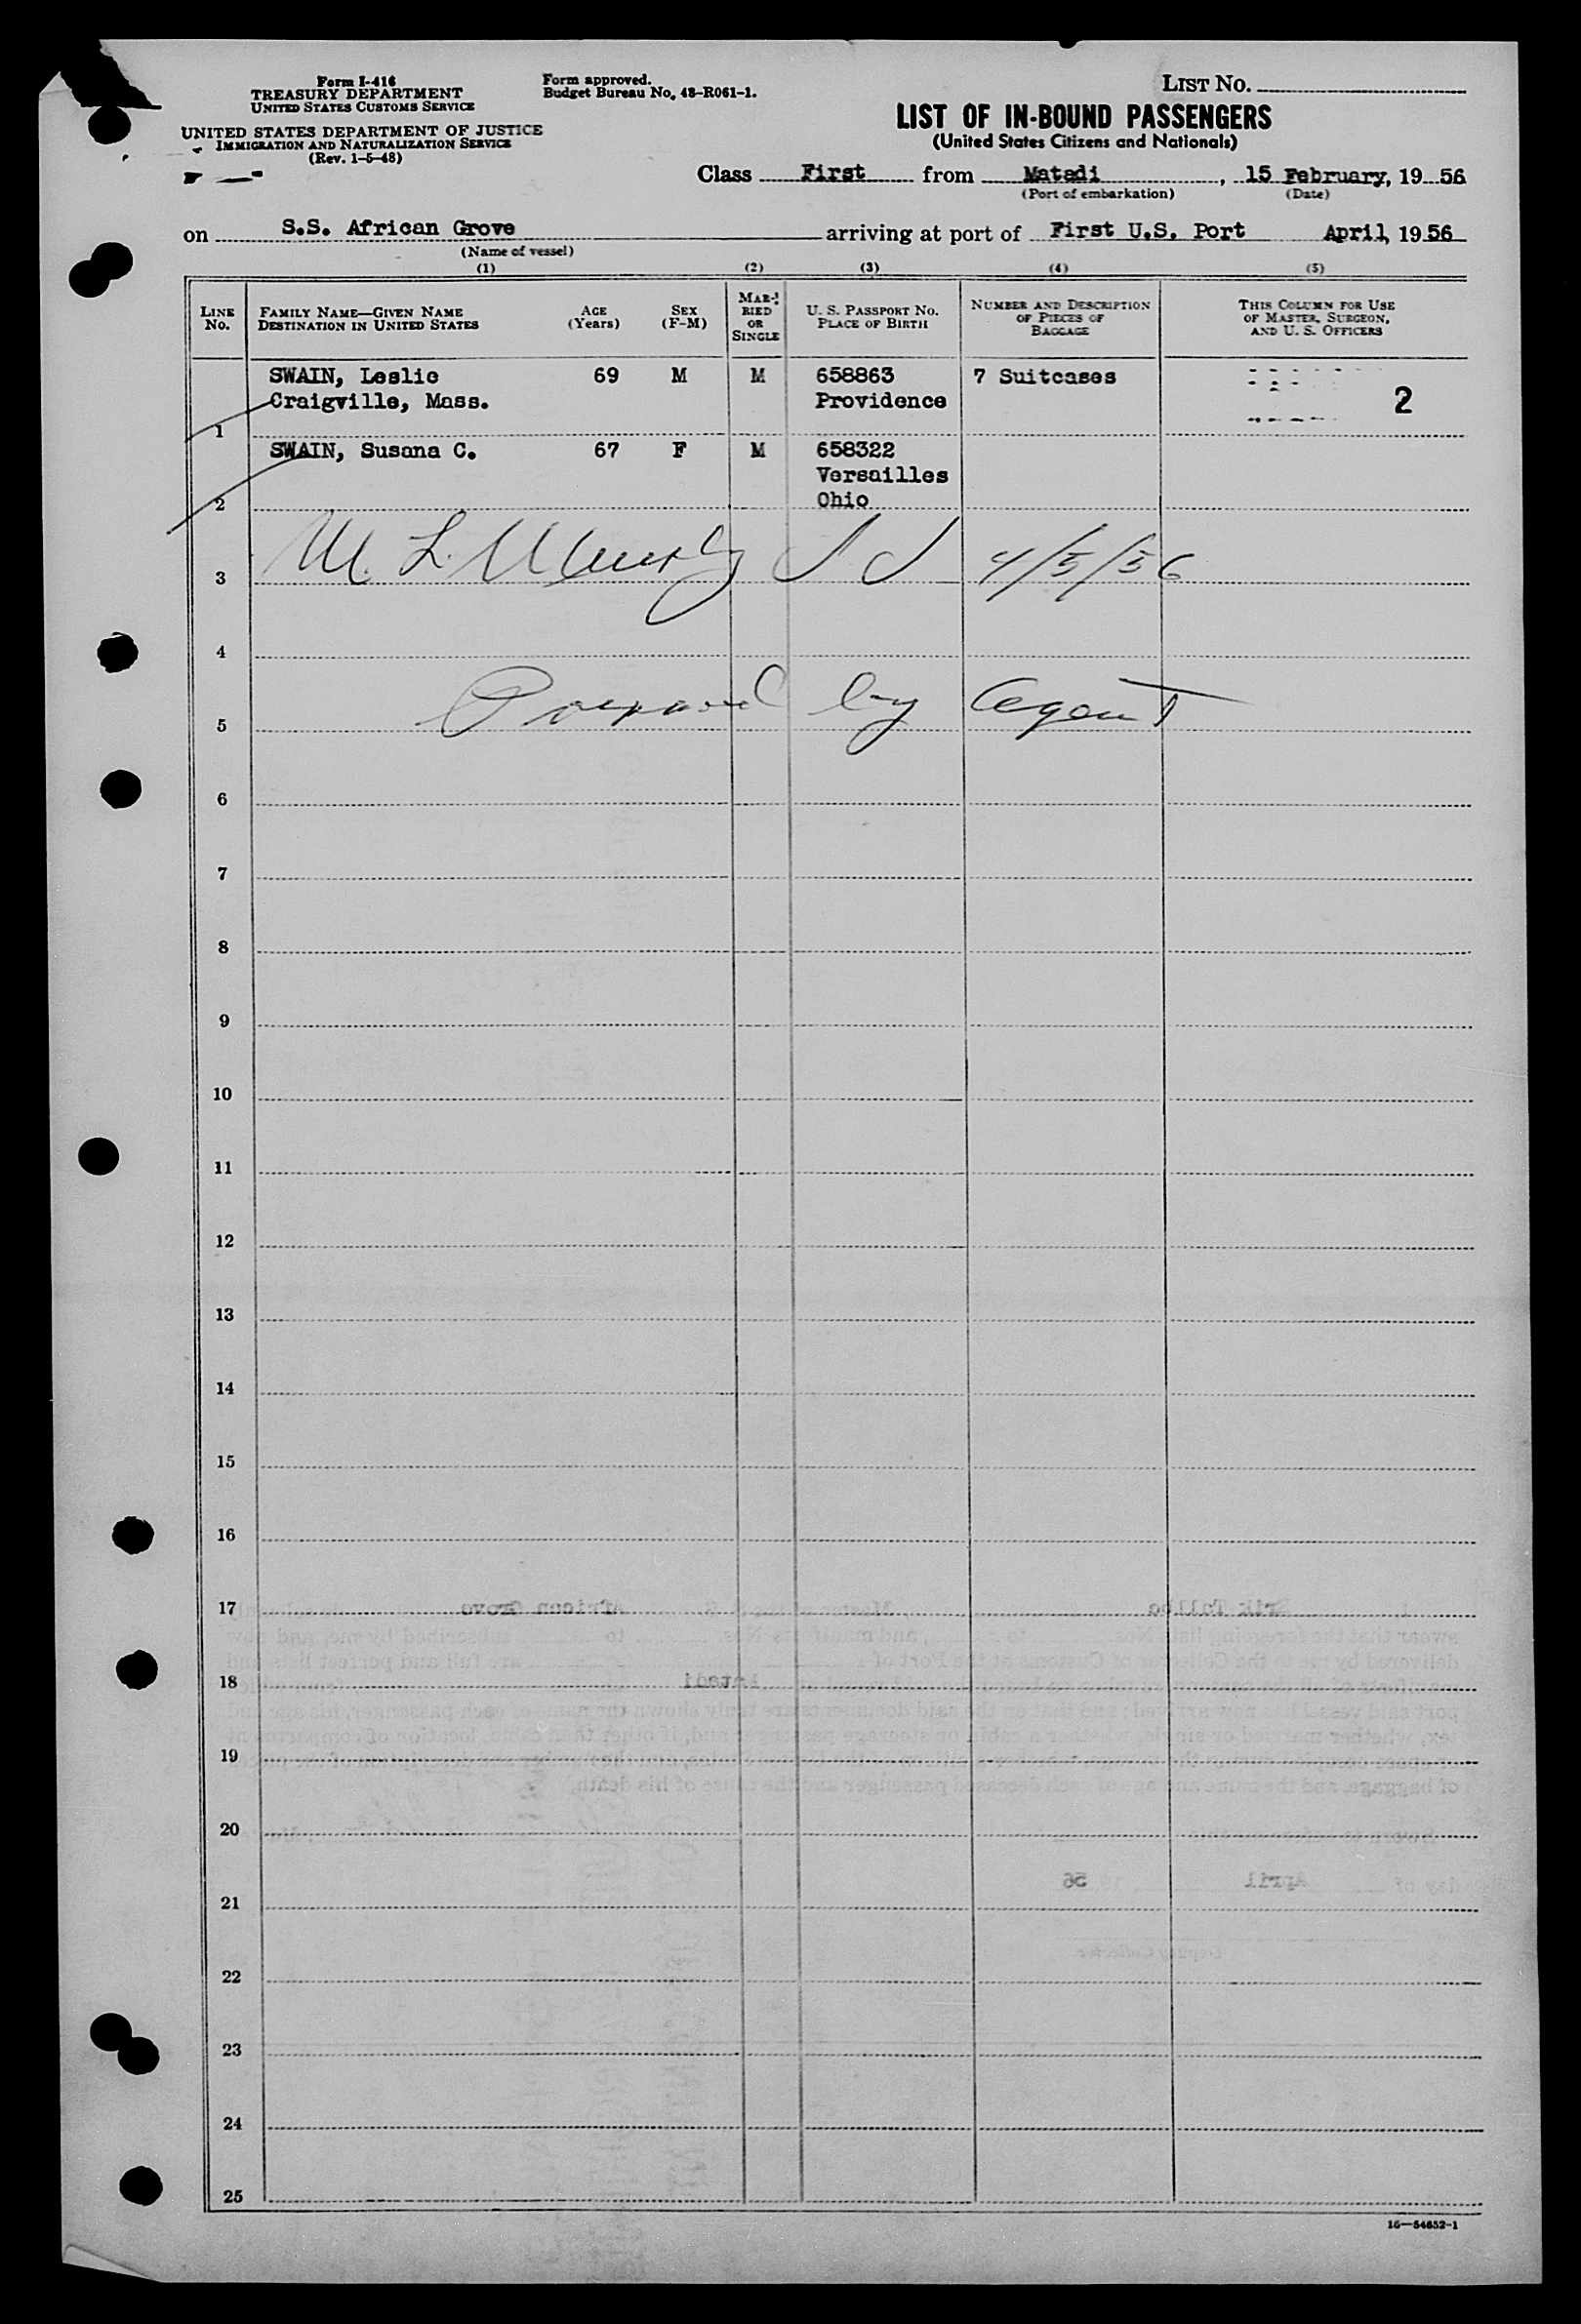 Form I-416
TREASURY DEPARTMENT
UNITED STATES CUSTOMS SERVICE
UNITED STATES DEPARTMENT OF JUSTICE
IMMIGRATION AND NATURALIZATION SERVICE
(Rev. 1-5-48)
Form approved.
Budget Bureau No. 43-R061-1.
LIST NO.
LIST OF IN-BOUND PASSENGERS
(United States Citizens and Nationals)
Class First from Matadi, 15 February, 1956
(Port of embarkation) (Date)
on S.S. African Grove arriving at port of First U.S. Port April, 1956
(Name of vessel)
(1) (2) (3) (4) (5)
LINE NO. FAMILY NAME—GIVEN NAME DESTINATION IN UNITED STATES AGE (Years) SEX (F-M) MARRIED OR SINGLE U. S. PASSPORT NO. PLACE OF BIRTH NUMBER AND DESCRIPTION OF PIECES OF BAGGAGE THIS COLUMN FOR USE OF MASTER, SURGEON, AND U. S. OFFICERS
SWAIN, Leslie 69 M M 658863 7 Suitcases
Craigville, Mass. Providence 2
1
SWAIN, Susana C. 67 F M 658322
Versailles
2 Ohio
3 M. L. Murphy 4/5/56
4
5 Prepared by Agent
6
7
8
9
10
11
12
13
14
15
16
17
18
19
20
21
22
23
24
25
16—54652-1